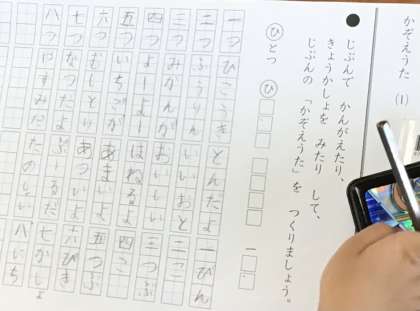 かぞえうた (1)
じぶんで かんがえたり、
きょうかしょを みたり して、
じぶんの 「かぞえうた」を つくりましょう。
ひとつ ひ 一
一つ ひこうき とんだよ 一びん
二つ ふうりん いいおと 二こ
三つ みかんが おいしい 三つぶ
四つ よーよー はねるよ 四こ
五つ いちごが あまいよ 五つぶ
六つ むしとり あついよ 六ぴき
七つ なつだよ ぷーるだ 七かしょ
八つ やすみだ たのしい 八にち